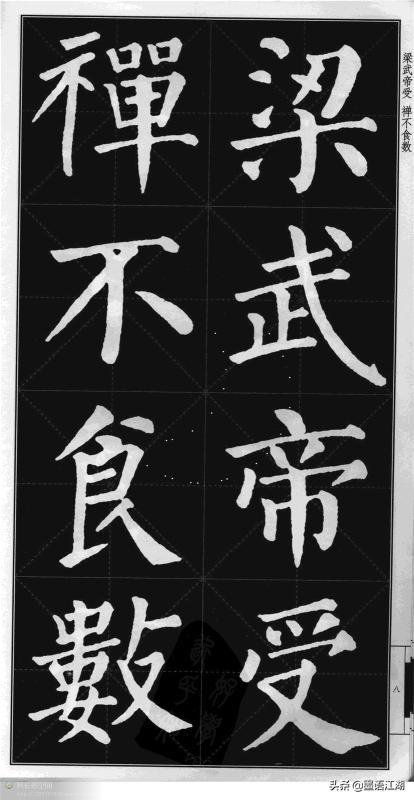 梁武帝受
禪不食數
梁武帝受 禅不食数
八
头条 @墨语江湖